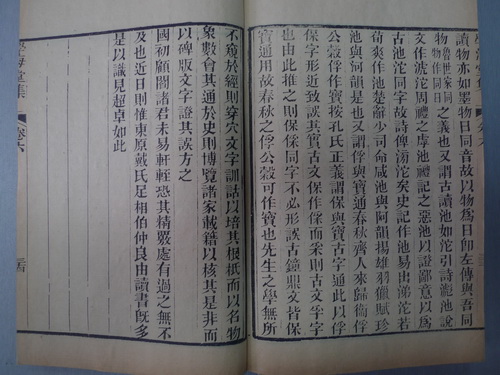 讀物亦如墨物曰同音故以物爲曰卽左傳與吾同
物魯世家同物作同日之義也又謂古讀池如沱引詩滮池說
文作淲沱周禮之虖池禮記之惡池以證鄙意以爲
古池沱同字故詩俾滂沱矣史記作池易出涕沱若
荀爽作池楚辭少司命咸池與阿韻揚雄羽獵賦珍
池與河韻是也又謂俘與寶通春秋齊人來歸衞俘
公穀俘作寶按孔氏正義謂保與寶古字通此以俘
保字形近致誤其實古文保作保而釆則古文孚字
也由此推之則保俘同字不必形誤古鐘鼎文皆保
寶通用故春秋之俘公穀可作寶也先生之學無所
不窺於經則穿穴文字訓詁以培其根柢而以名物
象數會其通於史則博覽諸家載籍以核其是非而
以碑版文字證其誤方之
國初顧閻諸君未易軒輊恐其精覈處有過之無不
及也近日則惟東原戴氏足相伯仲良由讀書旣多
是以識見超卓如此
學海堂集 卷六